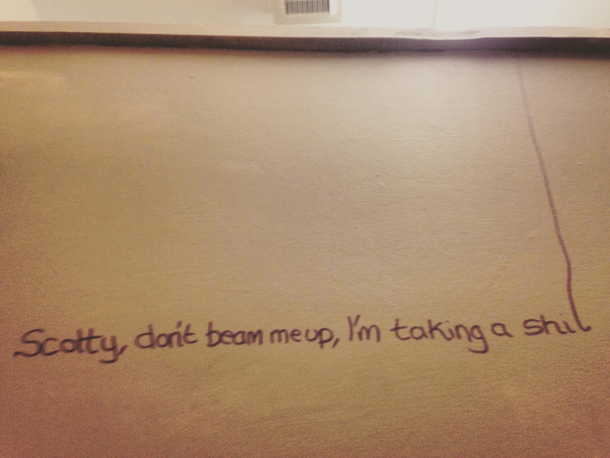 Scotty, don't beam me up, I'm taking a shil